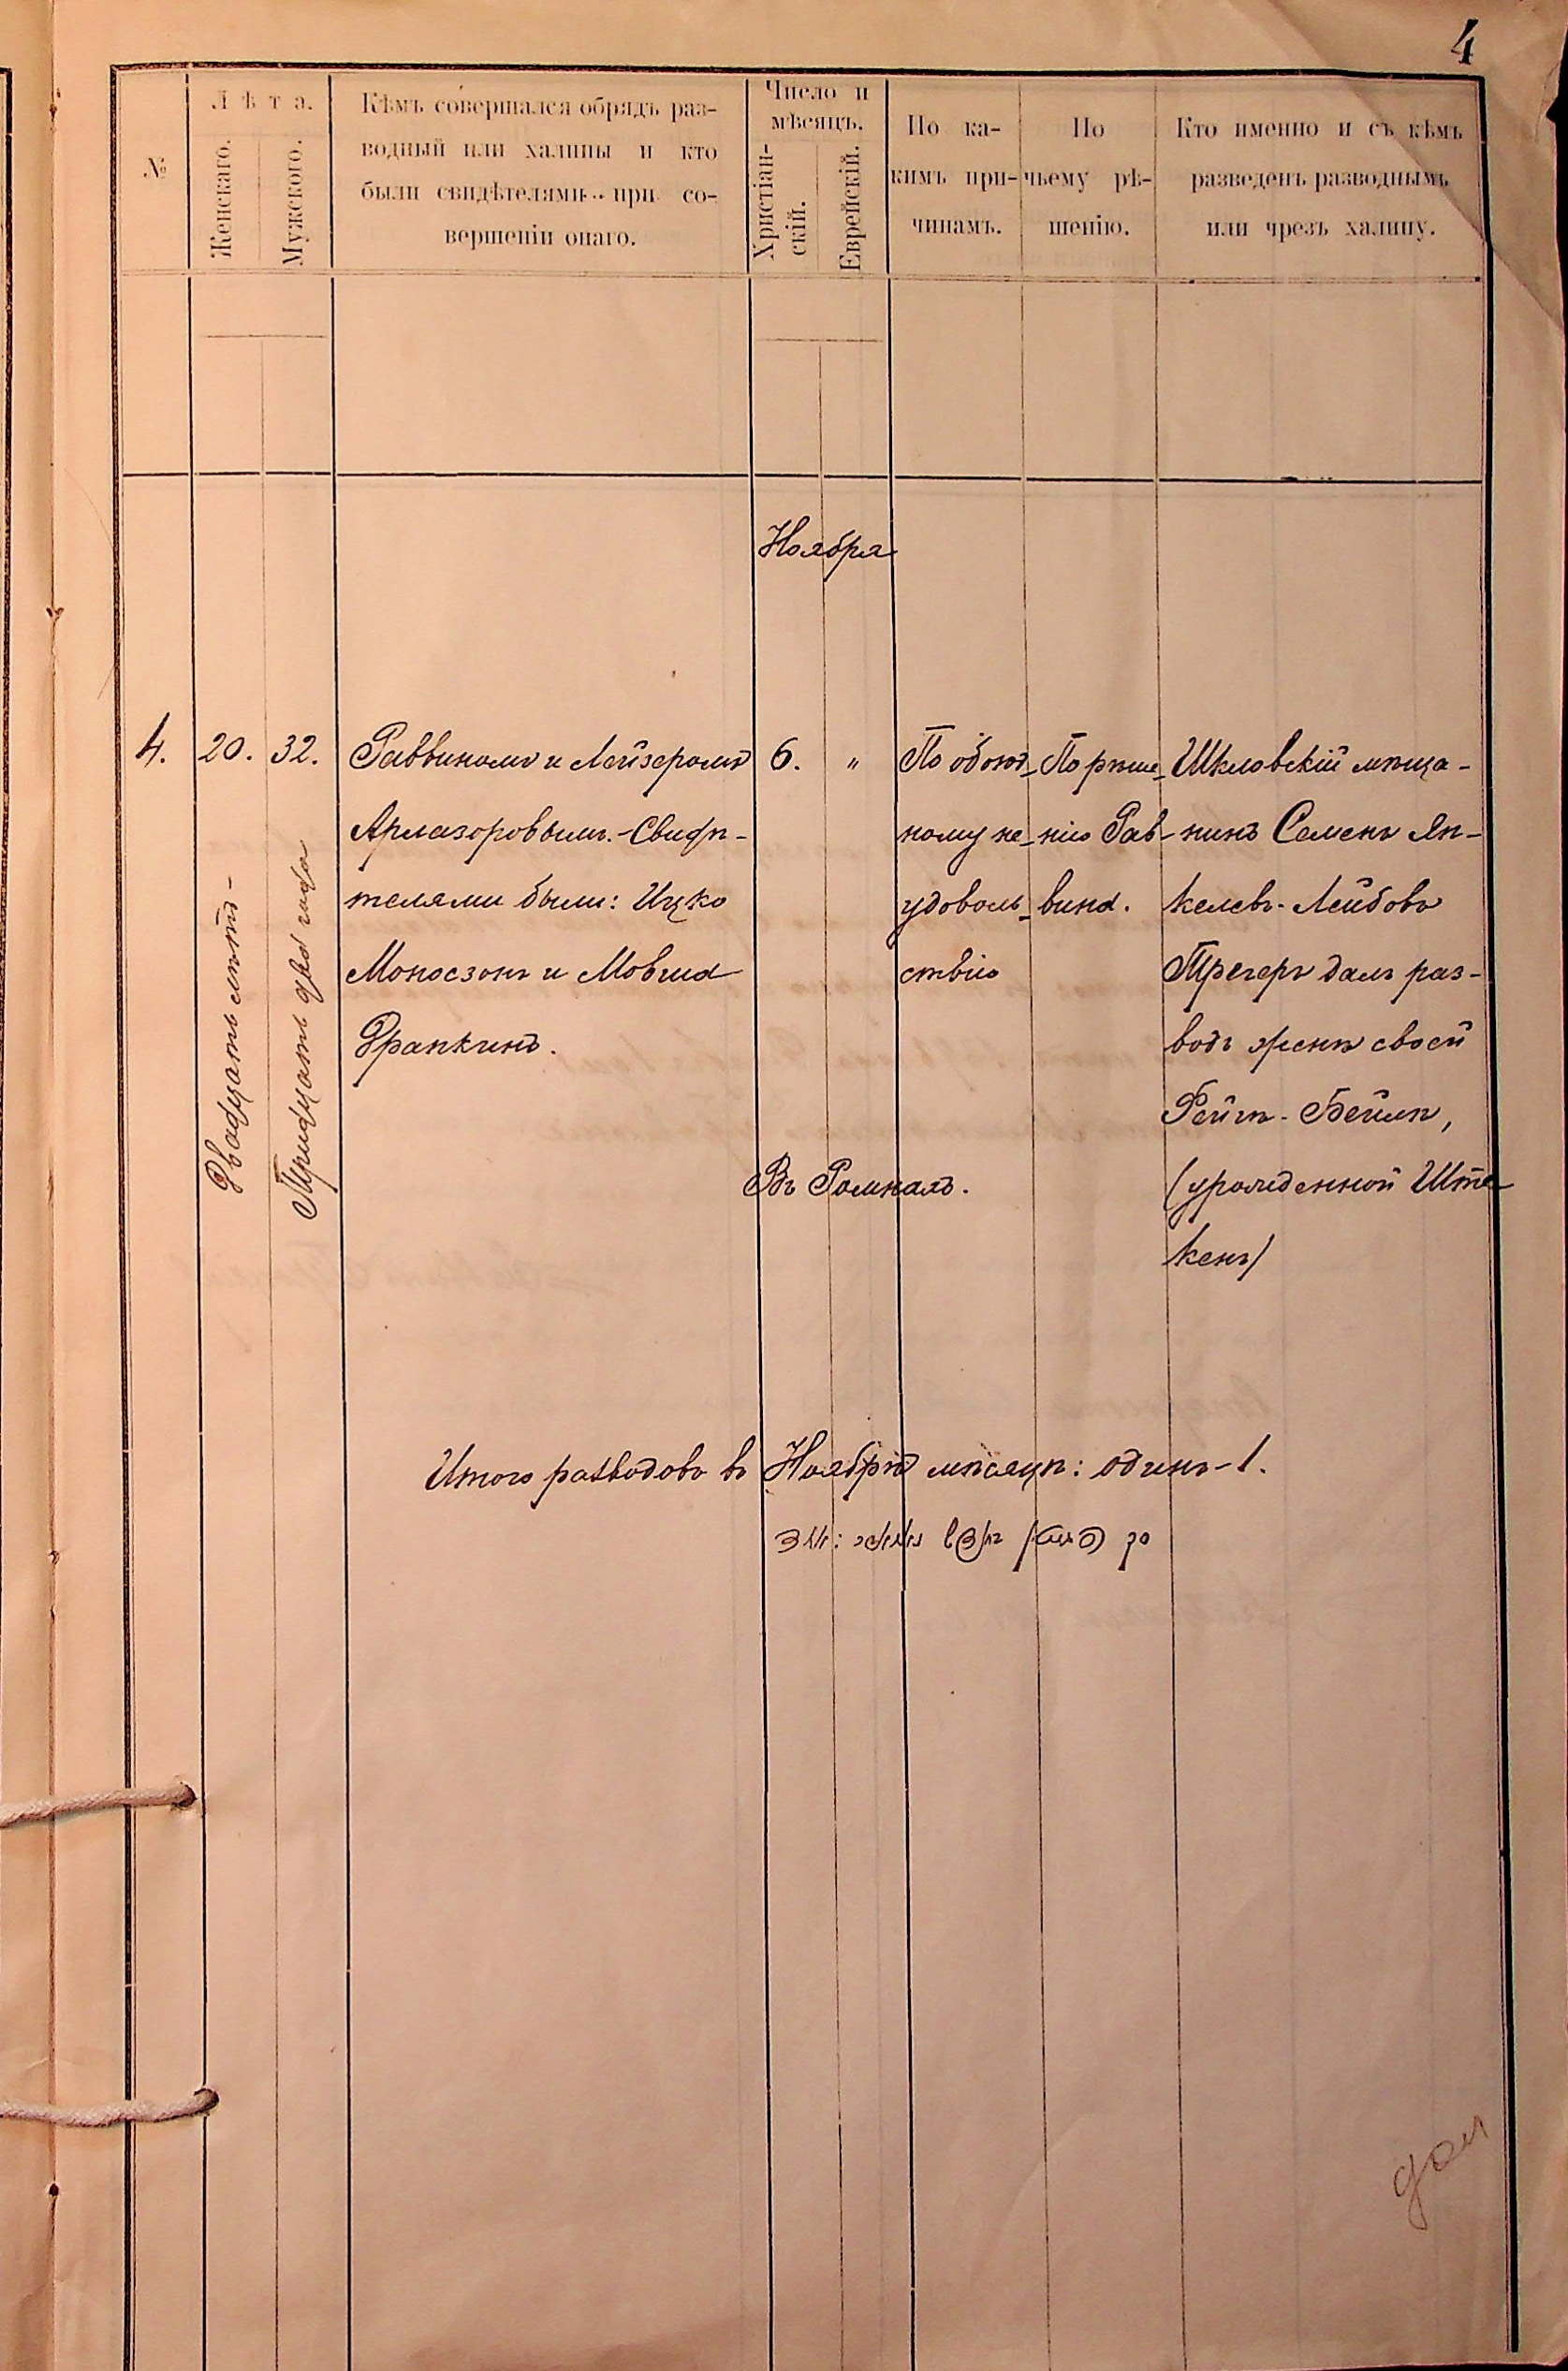 4
№
Лѣта.
Женскаго.
Мужского.
Кѣмъ совершался обрядъ раз-
водный или халицы и кто
были свидѣтелями при со-
вершеніи онаго.
Число и
мѣсяцъ.
Христіан-
скій.
Еврейскій.
По ка-
кимъ при-
чинамъ.
По
чьему рѣ-
шенію.
Кто именно и съ кѣмъ
разведенъ разводнымъ
или чрезъ халицу.
Ноября
4.
20.
Двадцать лѣтъ -
32.
Тридцать два года
Раввиномъ и Лейзеромъ
Арлазоровымъ.- Свидѣ-
телями были: Ицко
Моносзонъ и Мовша
Фрапкинъ.
6.
"
По обоюд-
ному не-
удоволь-
ствію
По рѣше-
нію Рав-
вина.
Шкловскій мѣща-
нинъ Семенъ Ян-
келевъ-Лейбовъ
Трегеръ далъ раз-
водъ женѣ своей
Рейзѣ-Бейлѣ,
(урожденной Ште
кенъ)
Въ Ромнахъ.
Итого разводовъ въ Ноябрѣ мѣсяцѣ: одинъ-1.